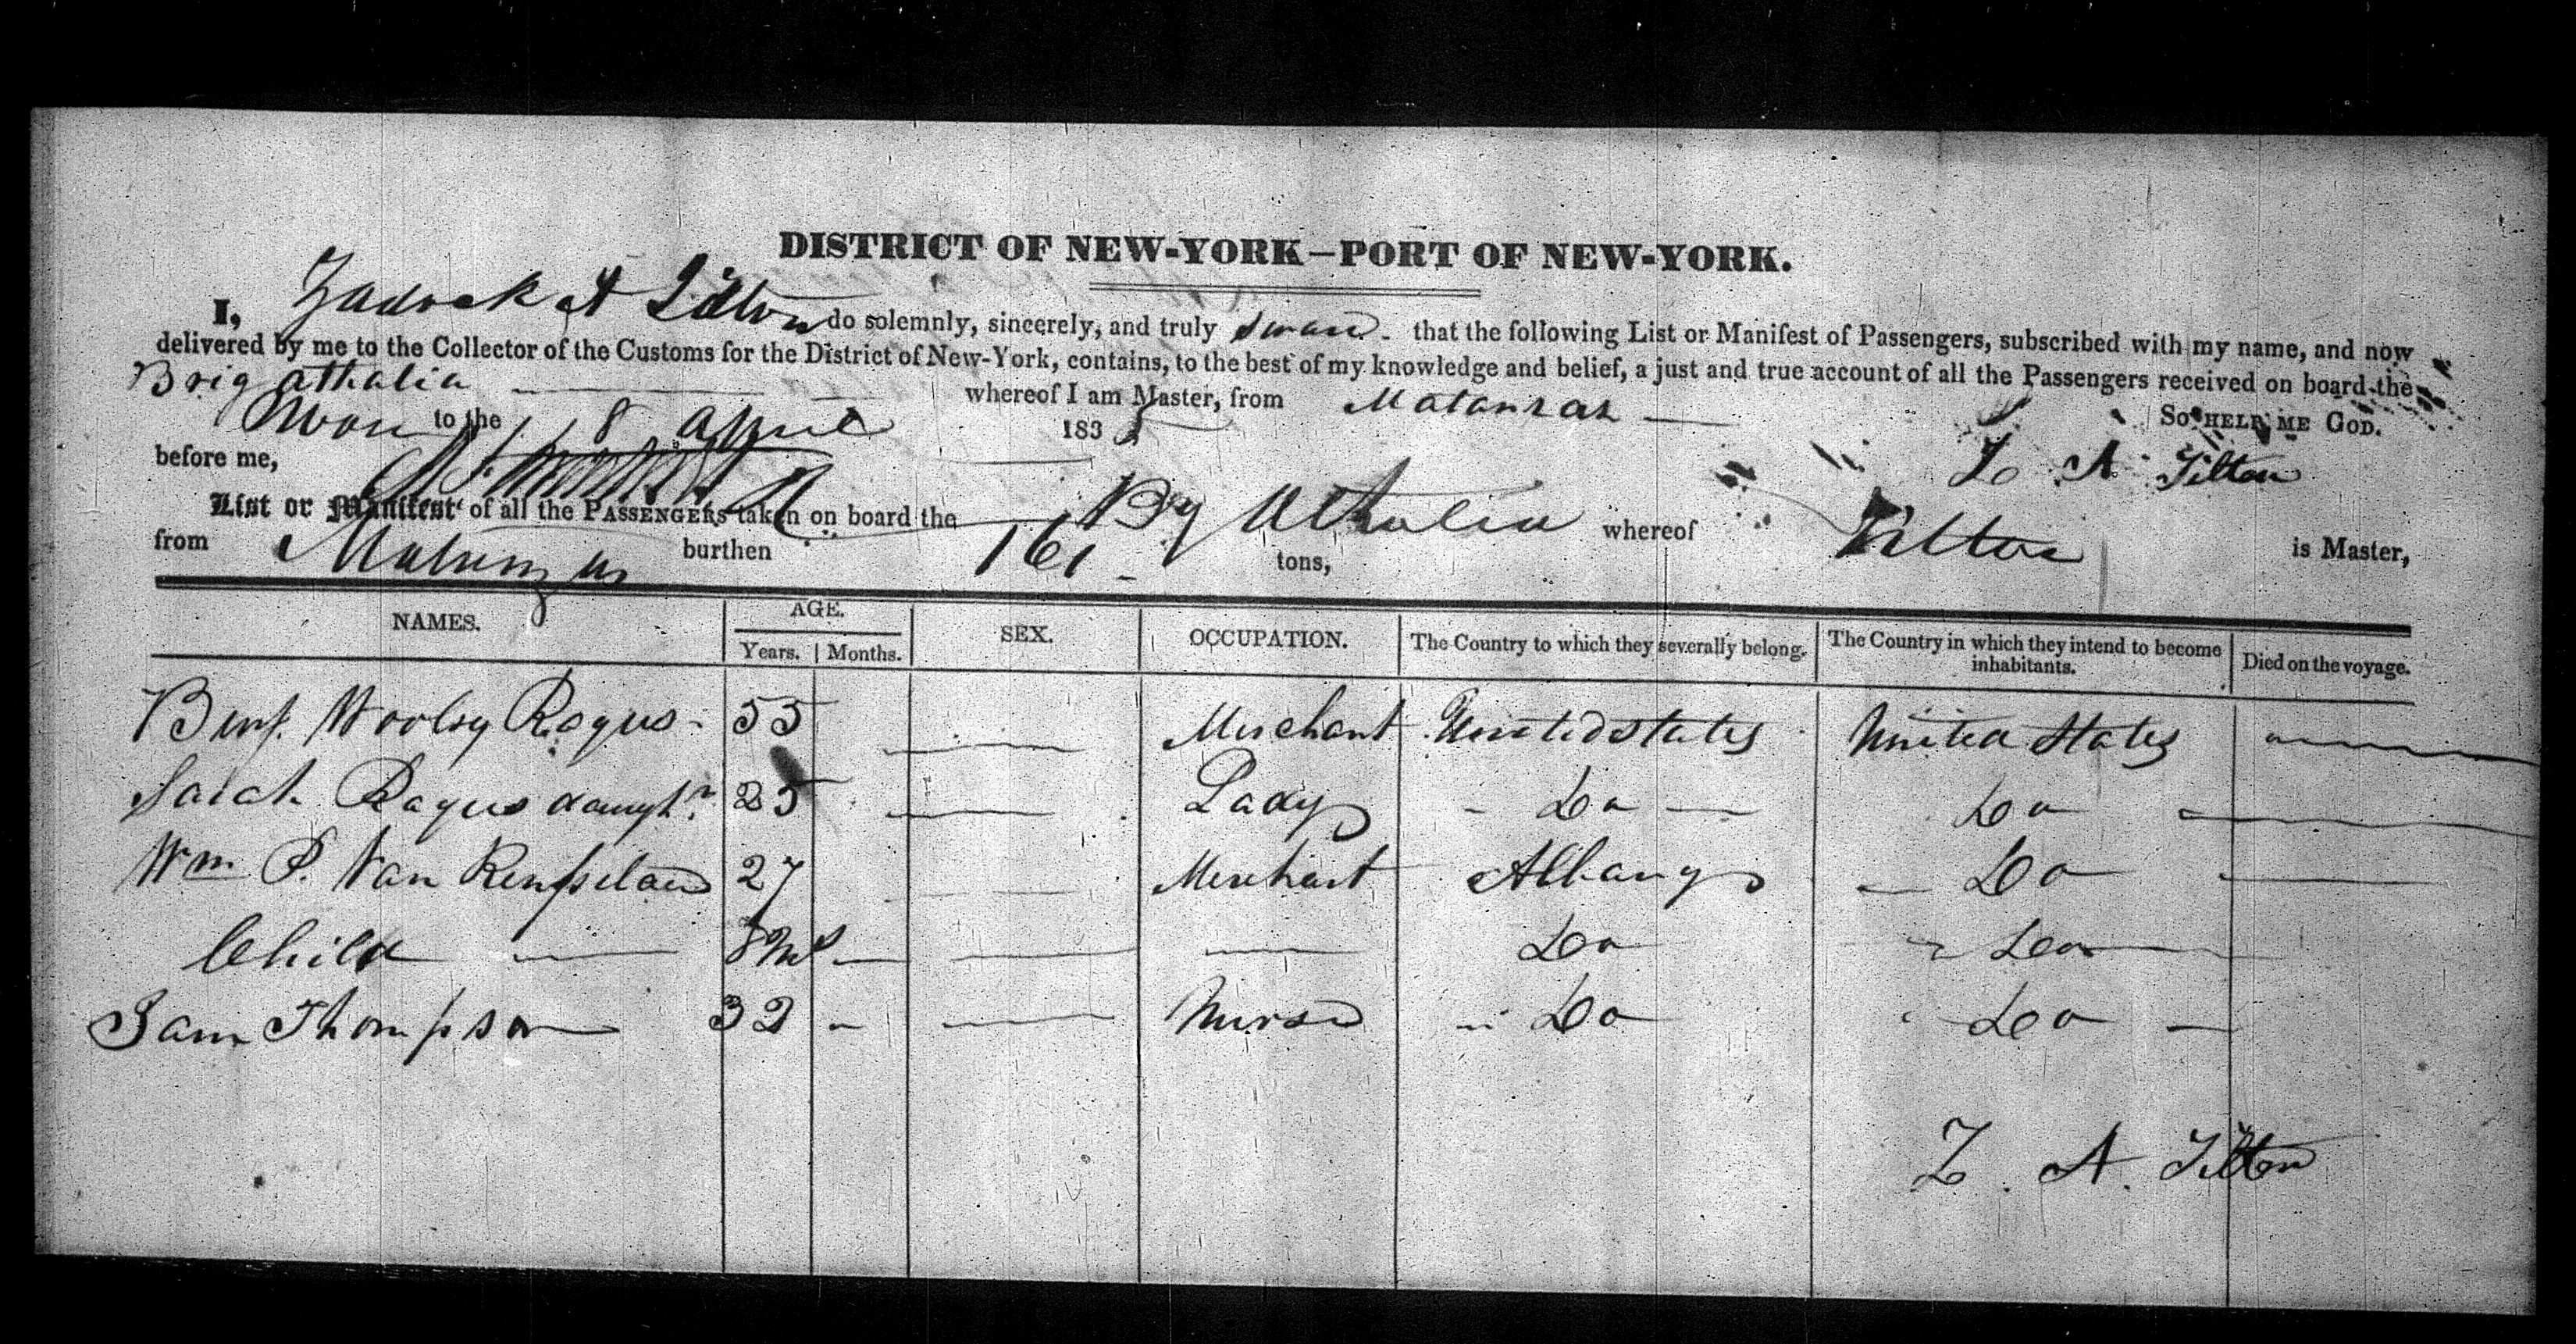 DISTRICT OF NEW-YORK—PORT OF NEW-YORK.
I, Zadock A Tilton do solemnly, sincerely, and truly swear that the following List or Manifest of Passengers, subscribed with my name, and now
delivered by me to the Collector of the Customs for the District of New-York, contains, to the best of my knowledge and belief, a just and true account of all the Passengers received on board the
Brig Athalia whereof I am Master, from Matanzas
Sworn to the 18 April 183 So HELP ME GOD.
before me, Z A Tilton
List or Manifest of all the PASSENGERS taken on board the Bg Athalia whereof Tilton is Master,
from Matanzas burthen 161 tons,
NAMES. AGE. Years. Months. SEX. OCCUPATION. The Country to which they severally belong. The Country in which they intend to become inhabitants. Died on the voyage.
Benj. Woolsy Rogus 55 Merchant United States United States
Sarah Rogus daught.r 25 Lady Do Do
Wm P. Van Rensselaer 27 Merchant Albany Do
Child Do Do
Sam Thompson 32 Nurse Do Do
Z. A. Tilton